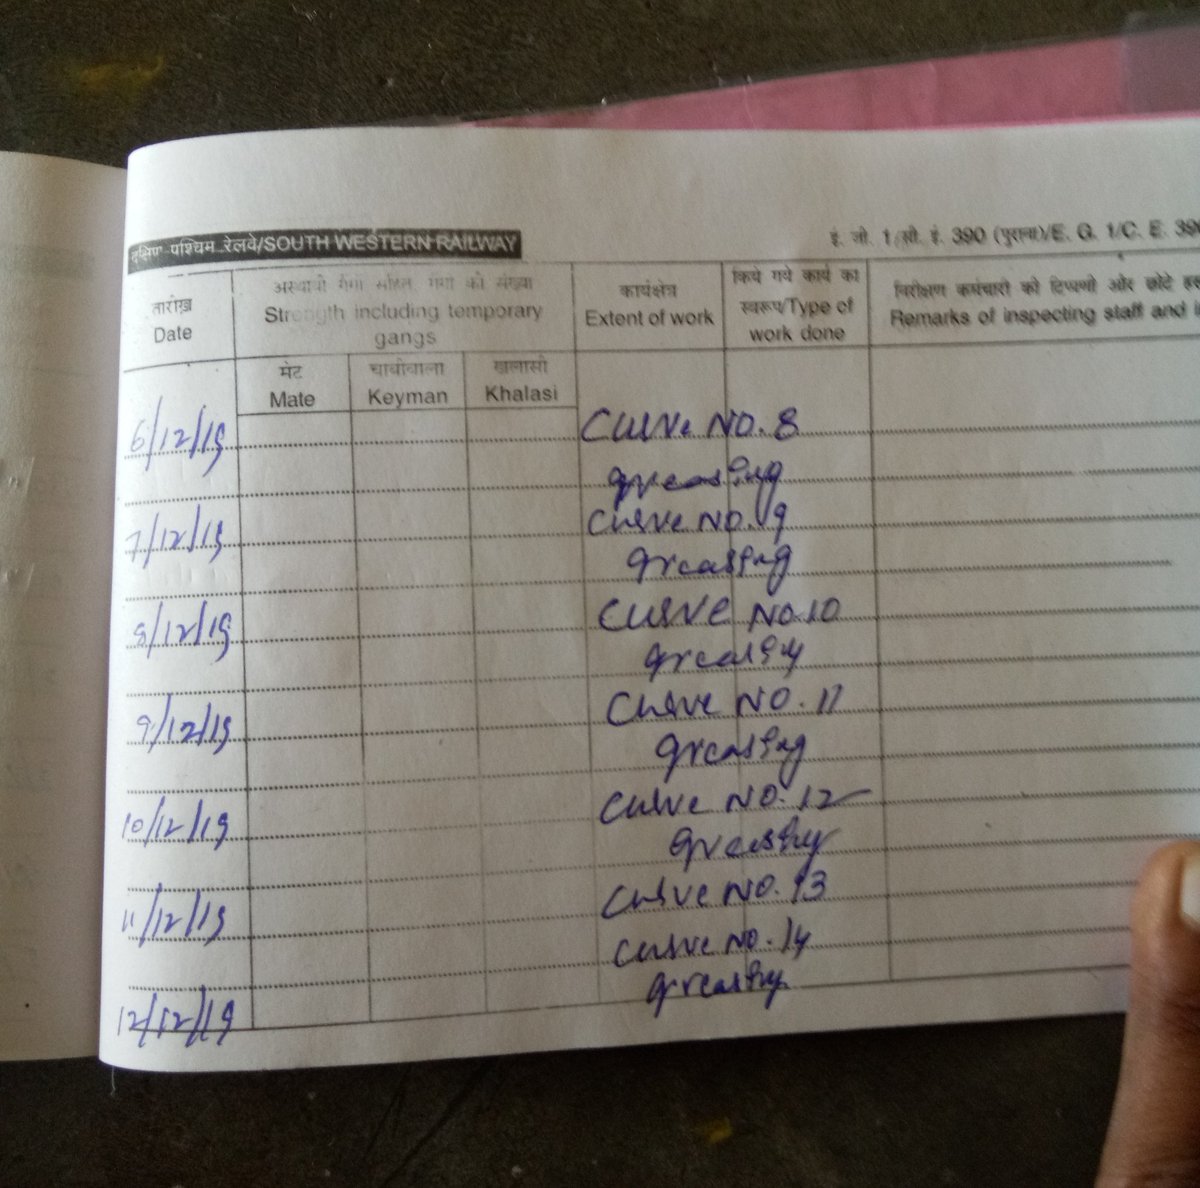 दक्षिण पश्चिम रेलवे/SOUTH WESTERN RAILWAY
इ. जी. 1/सी. इं. 390 (पुराना)/E. G. 1/C. E. 390
तारीख
Date
अस्थायी गैंगों सहित गैंगों की संख्या
Strength including temporary
gangs
कार्यक्षेत्र
Extent of work
किये गये कार्य का
स्वरूप/Type of
work done
निरीक्षण कर्मचारी की टिप्पणी और छोटे
Remarks of inspecting staff and
मेट
Mate
चाबीवाला
Keyman
खलासी
Khalasi
6/12/19 Curve No. 8
greasing
7/12/19 Curve No. 9
greasing
8/12/19 Curve No. 10
greasing
9/12/19 Curve No. 11
greasing
10/12/19 Curve No. 12
greasing
11/12/19 Curve No. 13
Curve No. 14
greasing
12/12/19